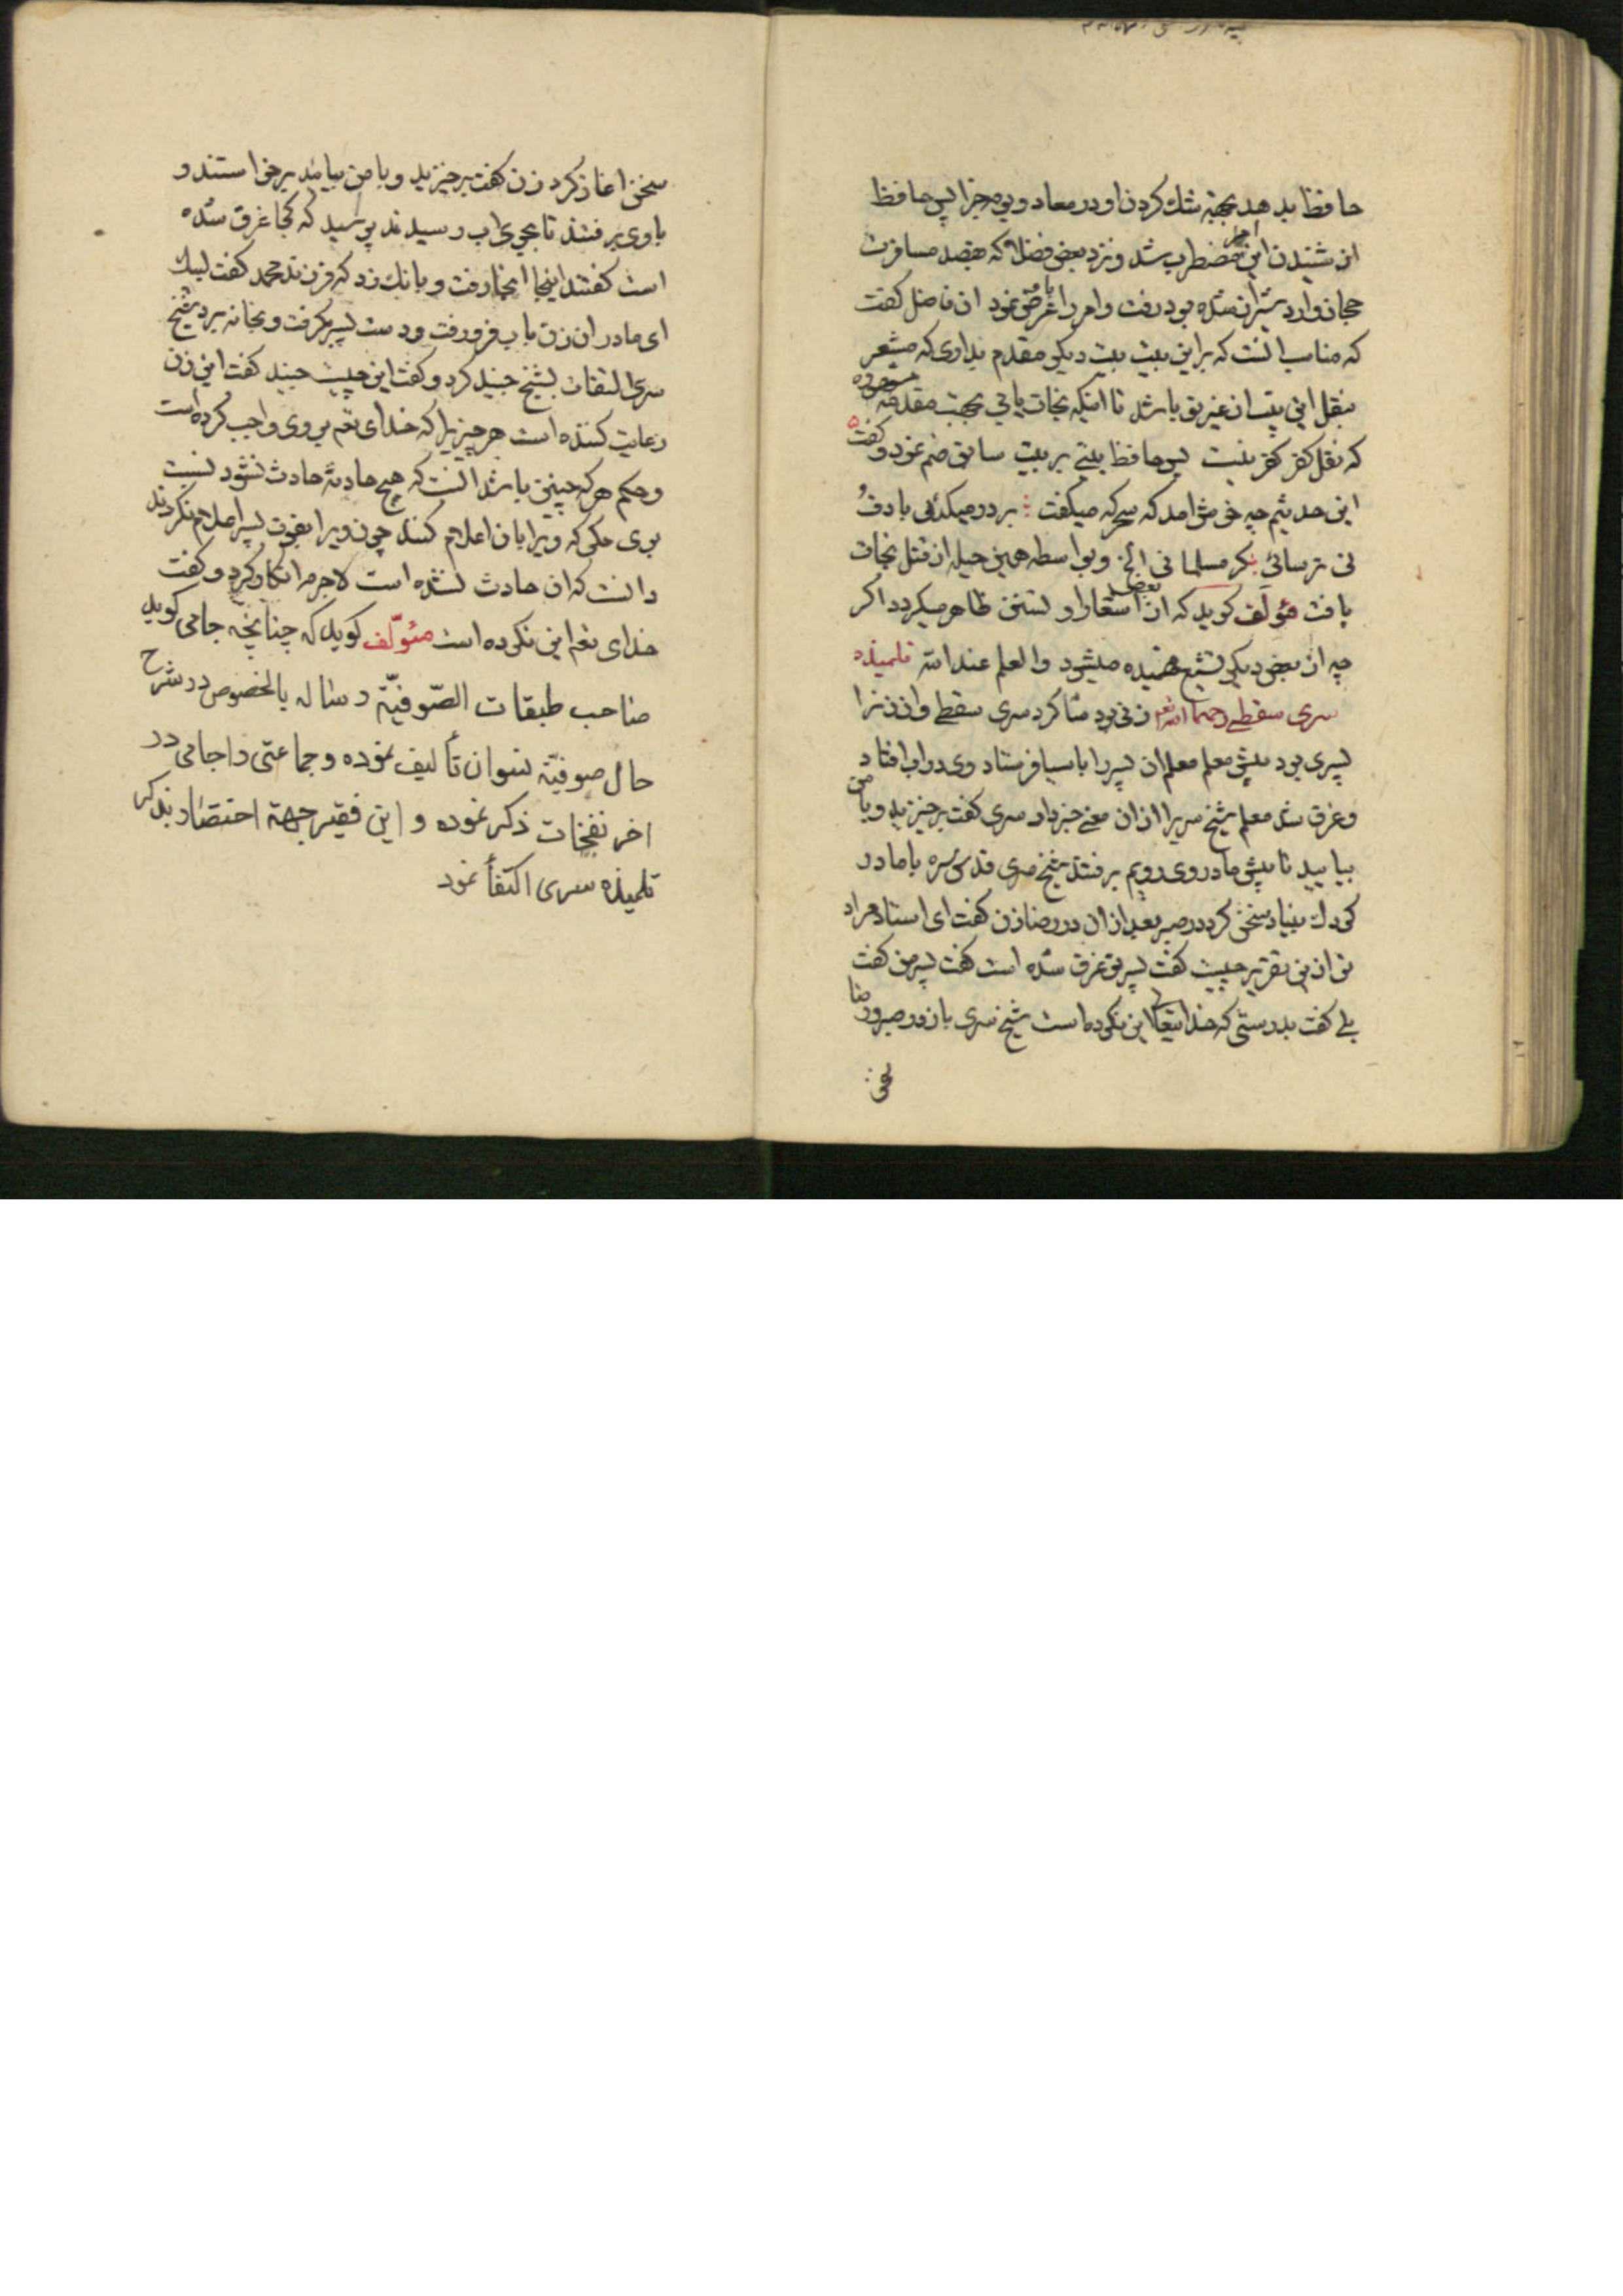 حافظ بدهد بجهة شك كردن او در معاد و يوم جزا پس حافظ
از شنيدن اين امر مضطرب شد و نزد بعض فضلا كه بقصد مسافرت
حجاز وارد شيراز شده بود رفت و امر را با عرض نمود ان فاضل كفت
كه مناسب انست كه بر اين بيت بيت ديكر مقدم بداری كه مشعر
بنقل اين بيت از غير تو باشد تا اينكه نجات يابي بجهت مقدمه مشهوره
كه نقل كفر كفر نيست پس حافظ بيتی بر بيت سابق ضم نمود و كفت ٥
اين حديثم چه خوش امد كه سحركه ميكفت ؛ بر در ميكدۀ با دف و
نی ترسائی كر مسلمانی الخ و بواسطه همين حيله از قتل نجات
يافت مؤلف كويد كه از بعض اشعار او تسنن ظاهر ميكردد اكر
چه از بعض ديكر تشيع فهميده ميشود والعلم عند الله تلميذه
سری سقطی رحمها الله تعم زنی بود شاكرد سری سقطی و ان زن را
پسری بود پيش معلم معلم ان پسر را باسيا فرستاد وی در اب افتاد
و غرق شد معلم شيخ سری را از ان معنی خبر داد سری كفت برخيزيد و با من
بياييد تا پيش مادر وی رويم برفتند شيخ سری قدس سره با مادر
كودك بنياد سخن كرد در صبر بعد از ان در رضا زن كفت ای استاد مراد
تو از اين تقرير چيست كفت پسر تو غرق شده است كفت پسر من كفت
بلی كفت بدرستی كه خدايتعالی اين نكرده است شيخ سری باز در صبر و رضا
سخن
سخن اغاز كرد زن كفت برخيزيد و با من بيائيد برخواستند و
با وی برفتند تا بجوی اب رسيدند پرسيد كه كجا غرق شده
است كفتند اينجا انجا رفت و بانك زد كه فرزند محمد كفت لبيك
ای مادر ان زن باب فرو رفت و دست پسر بكرفت و بخانه برد شيخ
سری التفات بشيخ جنيد كرد و كفت اين چيست جنيد كفت اين زن
رعايت كننده است هر چيزيرا كه خدای تعم بر وی واجب كرده است
و حكم هر كه چنين باشد انست كه هيچ حادثۀ حادث نشود نسبت
بوی مكر كه ويرا بان اعلام كنند چون ويرا بفوت پسر اعلام نكردند
دانست كه ان حادث نشده است لاجرم انكار كرد و كفت
خدای تعم اين نكرده است مئولّف كويد كه چنانچه جامی كويد
صاحب طبقات الصّوفيّة رساله بالخصوص در شرح
حال صوفيّة نسوان تأليف نموده و جماعتی را جامی در
اخر نفحات ذكر نموده و اين فقير جهة اختصار بذكر
تلميذه سری اكتفأ نمود